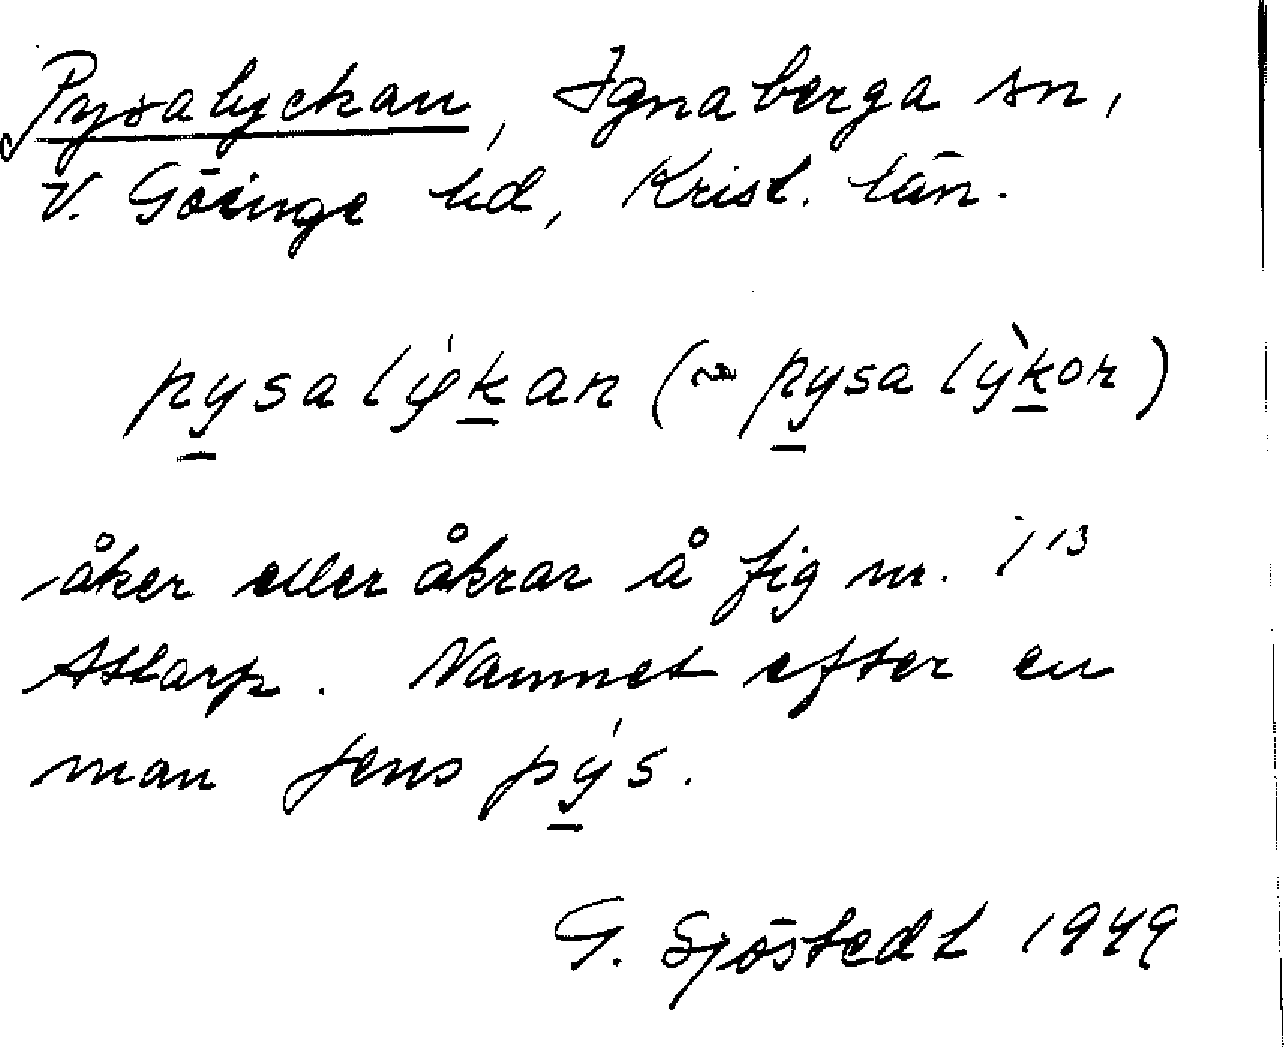 Pysalyckan, Ignaberga sn,
V. Göinge hd, Krist. län.
pysalýkan (~ pysalỳkor)
åker eller åkrar å fig nr. 1¹³
Attarp. Namnet efter en
man Jens pýs.
G. Sjöstedt 1949